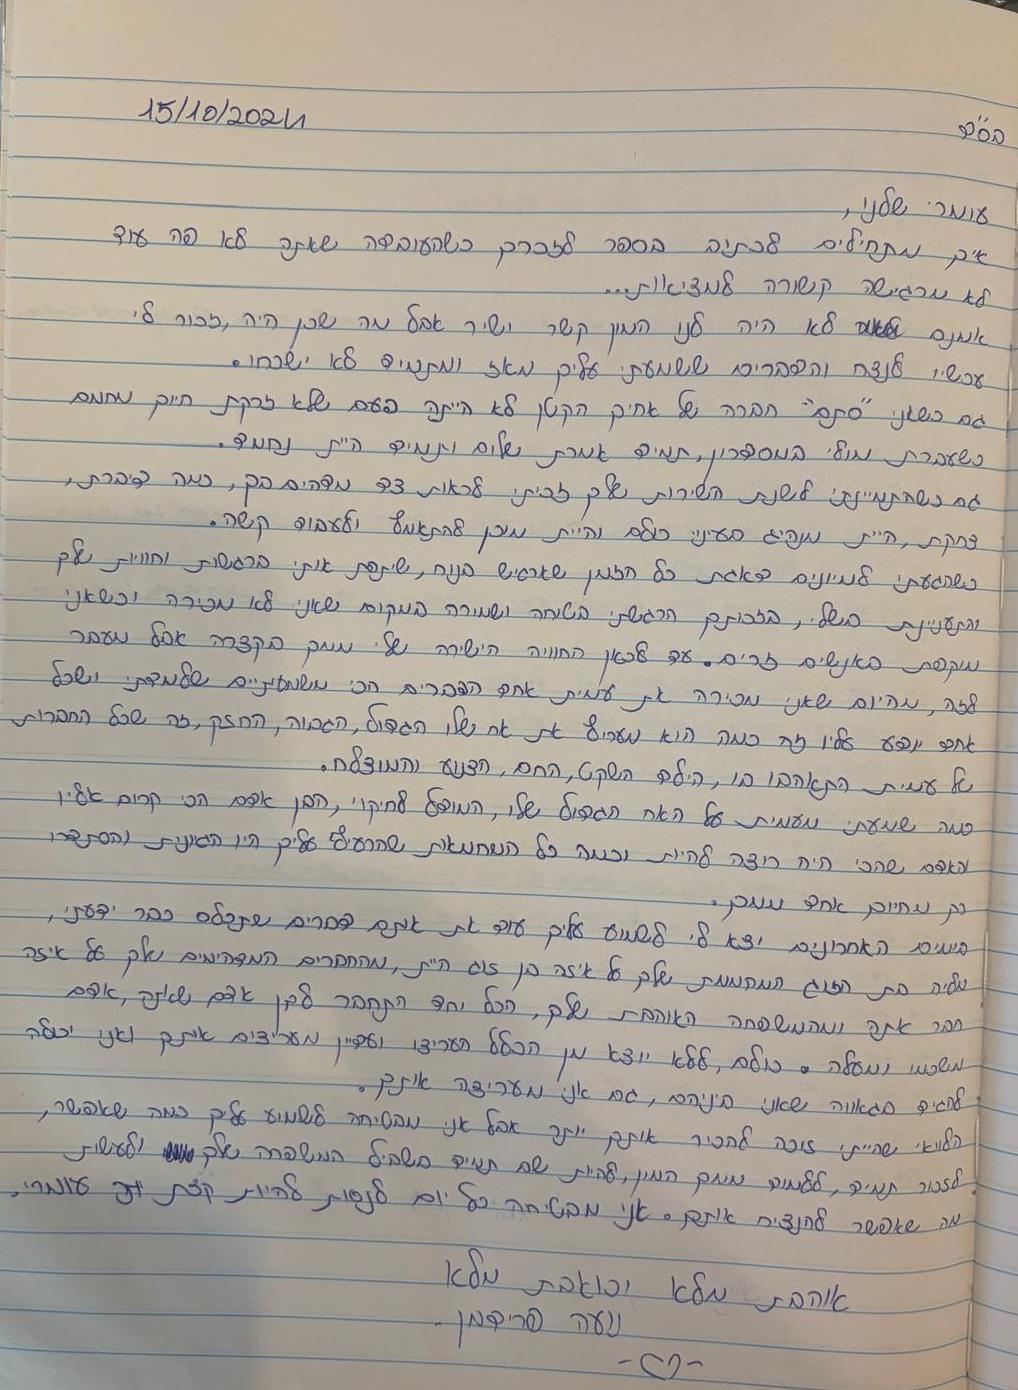 בס"ד
15/10/2024
עומרי שלנו,
איך מתחילים לכתוב בספר לזכרך כשהעובדה שאתה לא פה עוד
לא מרגישה קשורה למציאות...
אומנם לא היה לנו המון קשר ישיר אבל מה שכן היה, זכור לי
עכשיו לנצח והדברים ששמעתי עליך מאז ומתמיד לא ישכחו.
גם כשאני "סתם" חברה של אחיך הקטן לא הייתה פעם שלא זרקת חיוך מחמם
כשעברת מולי במסדרון, תמיד אמרת שלום ותמיד היית נחמד.
גם כשהתמיינתי לשנת השירות שלך זכיתי לראות צד מדהים בך, כמה דיברת,
צחקת, היית מנהיג בעיני כולם והיית מוכן להתאמץ ולעבוד קשה.
כשהגעתי למיונים דאגת כל הזמן שארגיש בנוח, שיתפת אותי ברגשות וחוויות שלך
והתעניינת בשלי, בזכותך הרגשתי בטוחה ושמורה במקום שאני לא מכירה וכשאני
מוקפת באנשים זרים. עד לכאן החוויה הישירה שלי ממך בקצרה אבל מעבר
לזה, מהיום שאני מכירה את עמית אחד הדברים הכי משמעותיים שלמדתי ושכל
אחד יודע עליו זה כמה הוא מעריץ את אח שלו הגדול, הגבוה, החזק, זה שכל החברות
של עמית התאהבו בו, הילד השקט, החם, הצנוע והמוצלח.
כמה שמעתי מעמית על האח הגדול שלו, המודל לחיקוי, הבן אדם הכי קרוב אליו
האדם שהכי היה רוצה להיות וכמה כל המחמאות שהרעיף עליך היו הגיוניות והסתדרו
רק מחיוך אחד ממך.
בימים האחרונים יצא לי לשמוע עליך עוד את אותם דברים שתכלס כבר ידעתי,
מליה בת הזוג המהממת שלך על איזה בן זוג היית, מהחברים המדהימים שלך על איזה
חבר אתה ומהמשפחה האוהבת שלך, הכל יחד התחבר לבן אדם שאתה, אדם
משכמו ומעלה. כולם, ללא יוצא מן הכלל העריצו ועדיין מעריצים אותך ואני יכולה
להגיד בגאווה שאני ביניהם, גם אני מעריצה אותך.
הלוואי שהייתי זוכה להכיר אותך יותר אבל אני מבטיחה לשמוע עליך כמה שאפשר,
לזכור תמיד, ללמוד ממך המון, להיות שם תמיד בשביל המשפחה שלך ולעשות
מה שאפשר להנציח אותך. אני מבטיחה כל יום לנסות להיות קצת עומרי.
אוהבת מלא וכואבת מלא
נועה פרידמן.